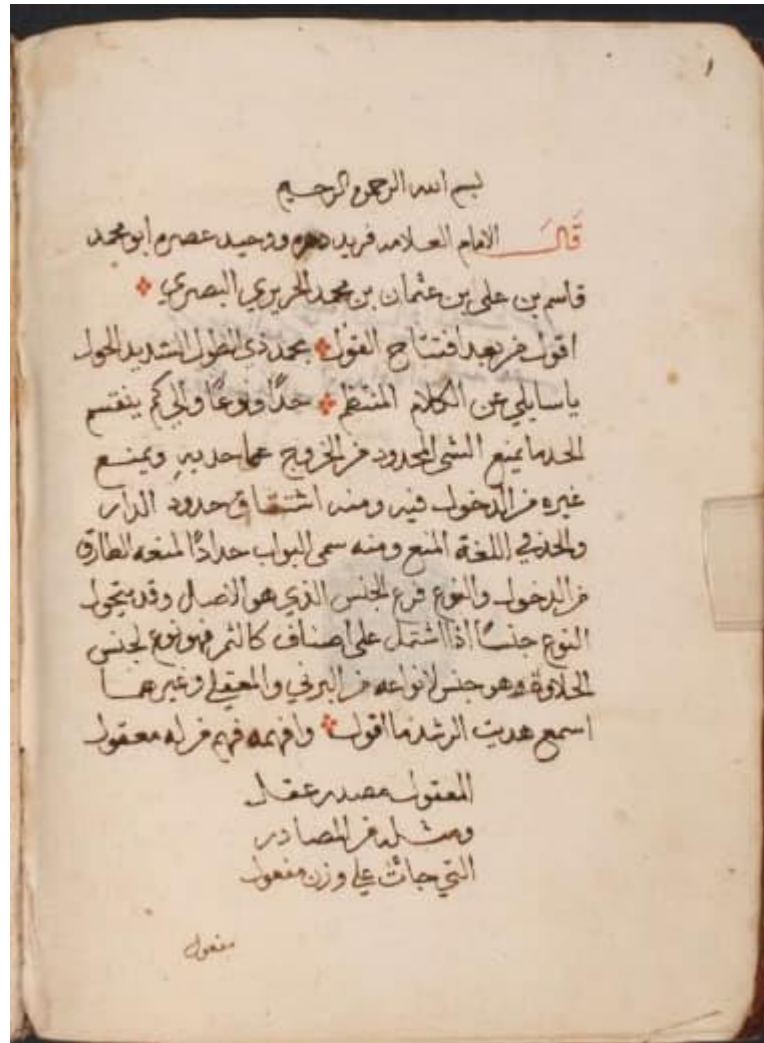 ١
بسم الله الرحمن الرحيم
قال الامام العلامه فريد دهره ووحيد عصره ابو محمد
قاسم بن علي بن عثمان بن محمد الحريري البصري
اقول من بعد افتتاح القول بحمد ذي الطول الشديد الحول
ياسايلي عن الكلام المنتظم حدًا ونوعًا والي كم ينقسم
الحد ما يمنع الشي المحدود من الخروج عما حد به ويمنع
غيره من الدخول فيه ومنه اشتقاق حدود الدار
والحد في اللغة المنع ومنه سمي البواب حدادًا لمنعه الطارق
من الدخول والنوع فرع الجنس الذي هو الاصل وقد يتحول
النوع جنسًا اذا اشتمل علي اصناف كالتمر فهو نوع لجنس
الحلاوة وهو جنس لانواعه من البرني والمعقلي وغيرهما
اسمع هديت الرشد ما اقول وافهمه فهم من له معقول
المعقول مصدر عقل
ومثله من المصادر
التي جاءت علي وزن مفعول
مفعول